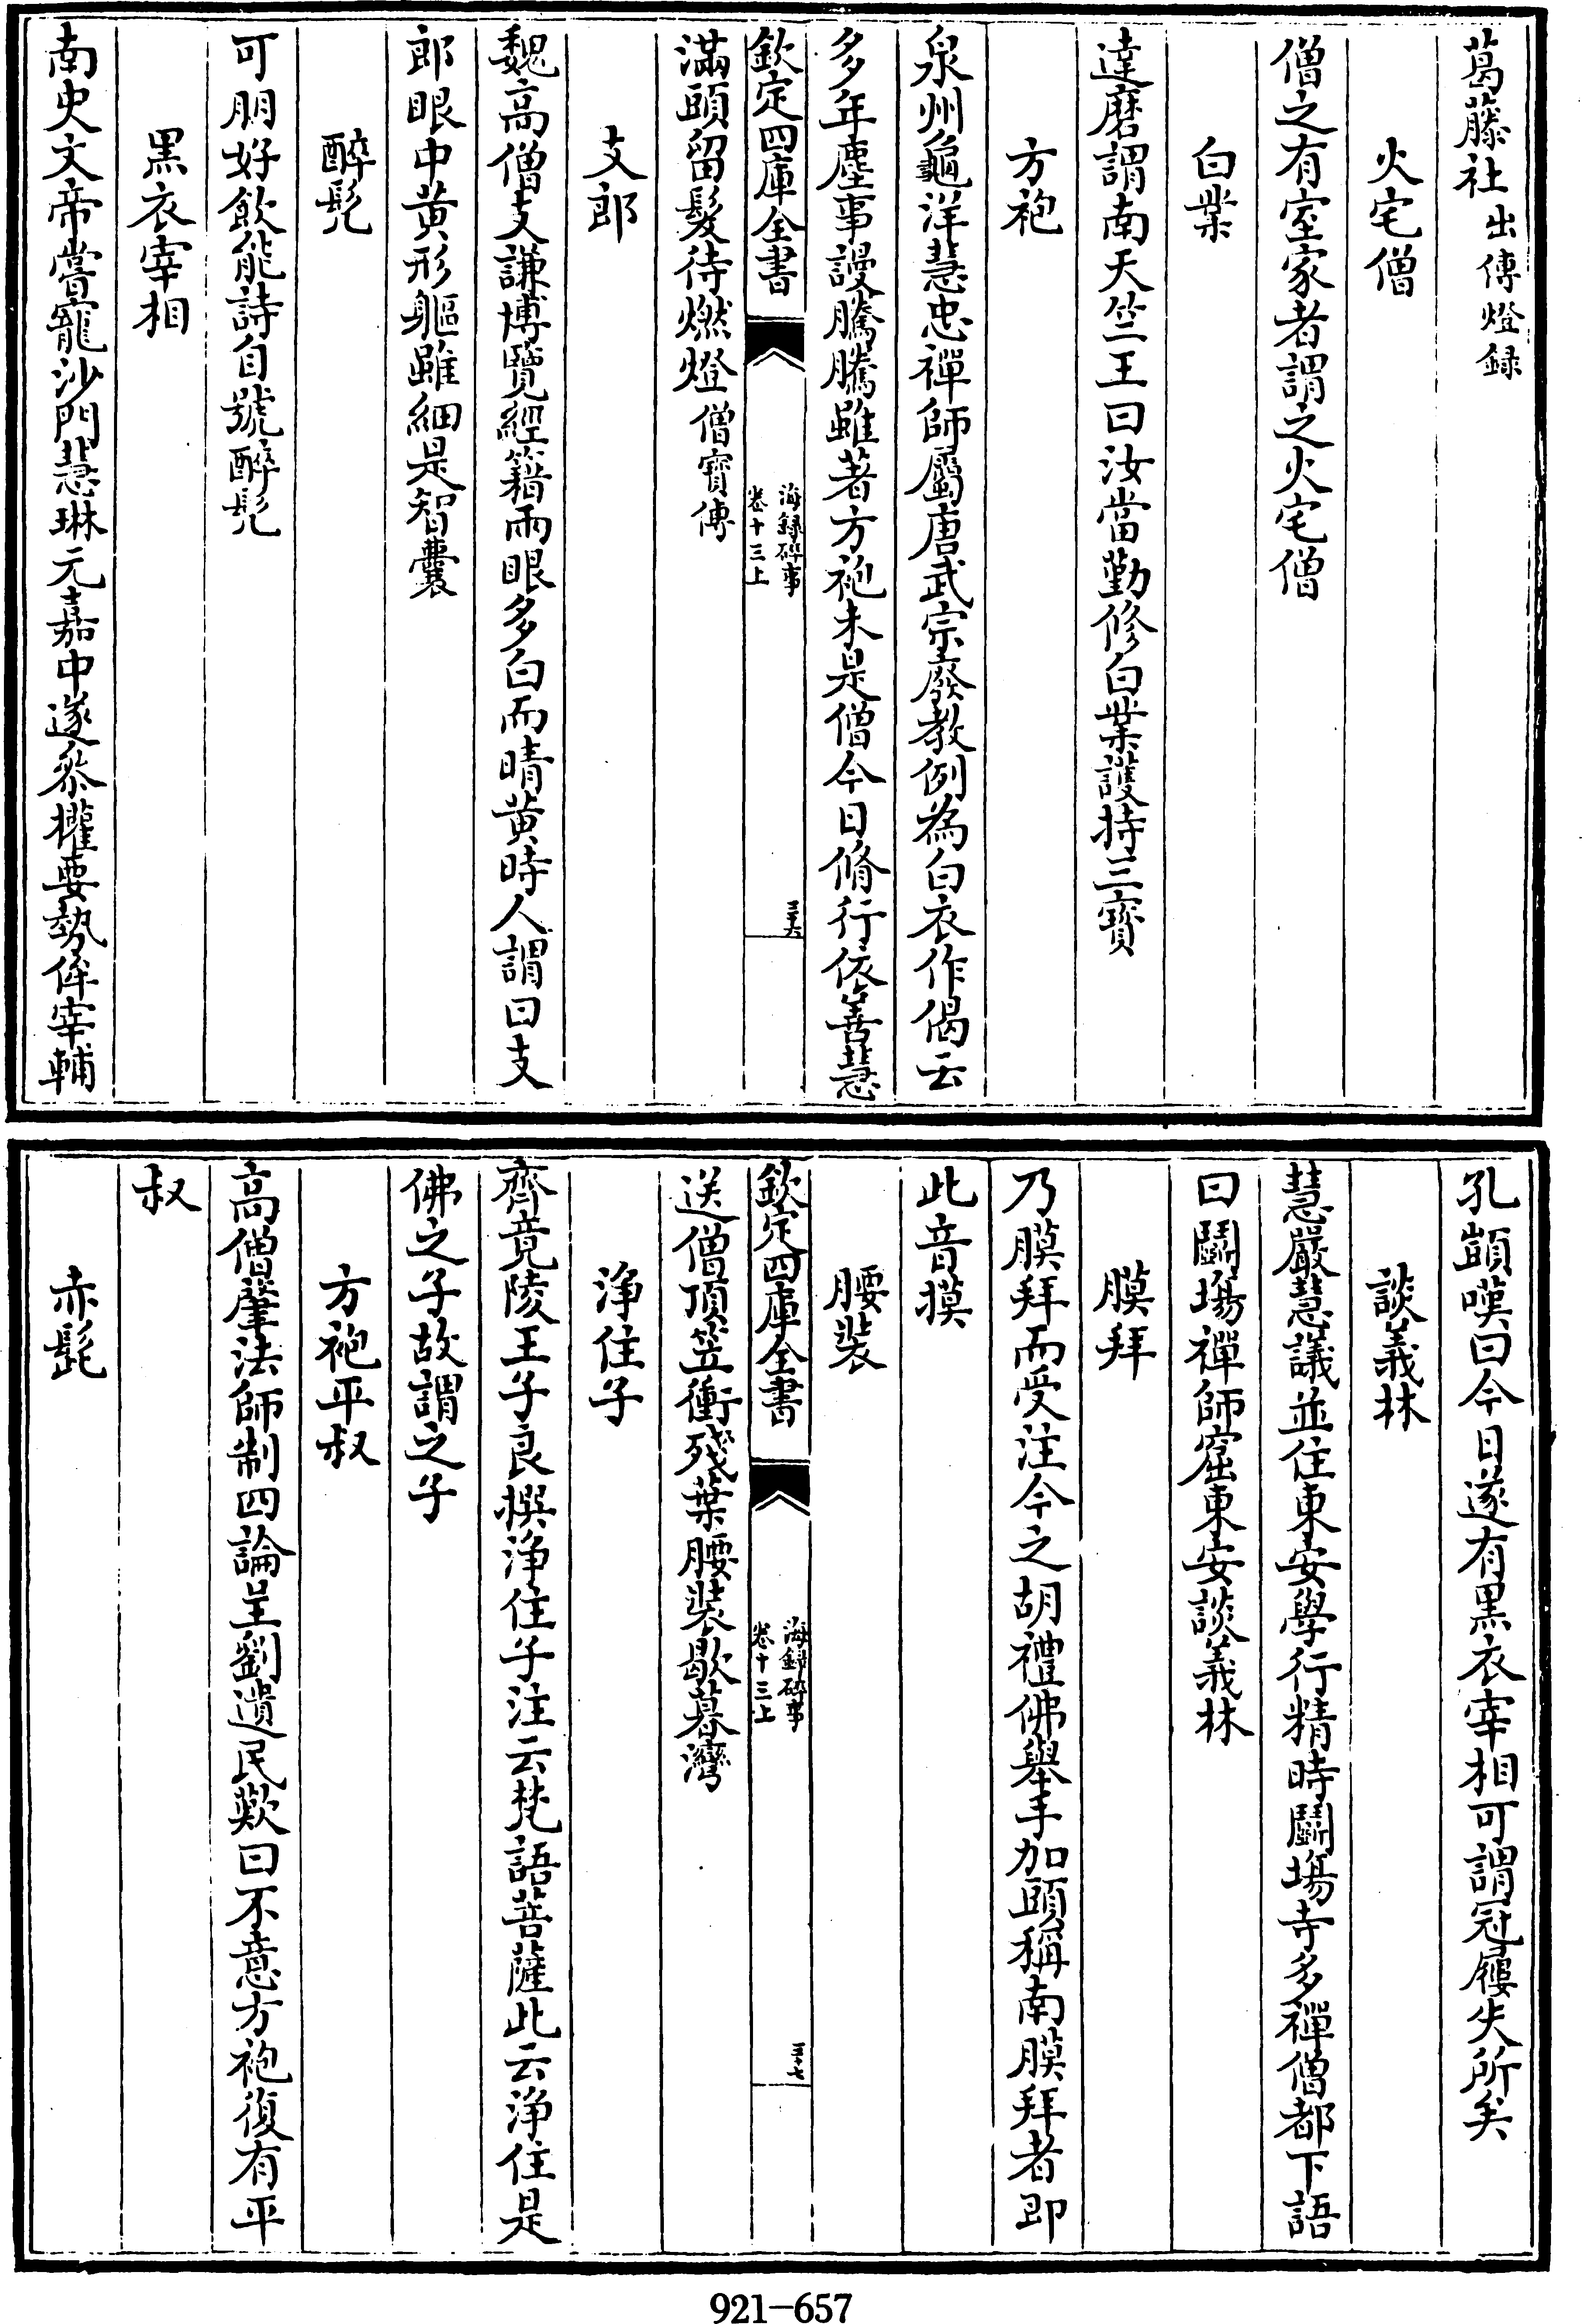 葛藤社出傳燈録
火宅僧
僧之有室家者謂之火宅僧
白業
達磨謂南天竺王曰汝當勤修白業護持三寶
方袍
泉州龜洋慧忠禪師屬唐武宗廢教例為白衣作偈云
多年塵事謾騰騰雖著方袍未是僧今日脩行依善慧
欽定四庫全書
海録碎事
卷十三上
三十六
滿頭留髮待燃燈僧寶傳
支郎
魏高僧支謙博覽經籍兩眼多白而晴黄時人謂曰支
郎眼中黄形軀雖細是智囊
醉髠
可朋好飲能詩自號醉髠
黒衣宰相
南史文帝嘗寵沙門慧琳元嘉中遂叅權要勢侔宰輔
孔顗嘆曰今日遂有黒衣宰相可謂冠屨失所矣
談義林
慧嚴慧議並住東安學行精時鬭塲寺多禪僧都下語
曰鬭塲禪師窟東安談義林
膜拜
乃膜拜而受注今之胡禮佛舉手加頭稱南膜拜者即
此音摸
腰裝
欽定四庫全書
海録碎事
卷十三上
三十七
送僧頂笠衝殘葉腰裝歇暮灣
浄住子
齊竟陵王子良撰浄住子注云梵語菩薩此云浄住是
佛之子故謂之子
方袍平叔
高僧肇法師制四論呈劉遺民歎曰不意方袍復有平
叔
赤髭
921-657